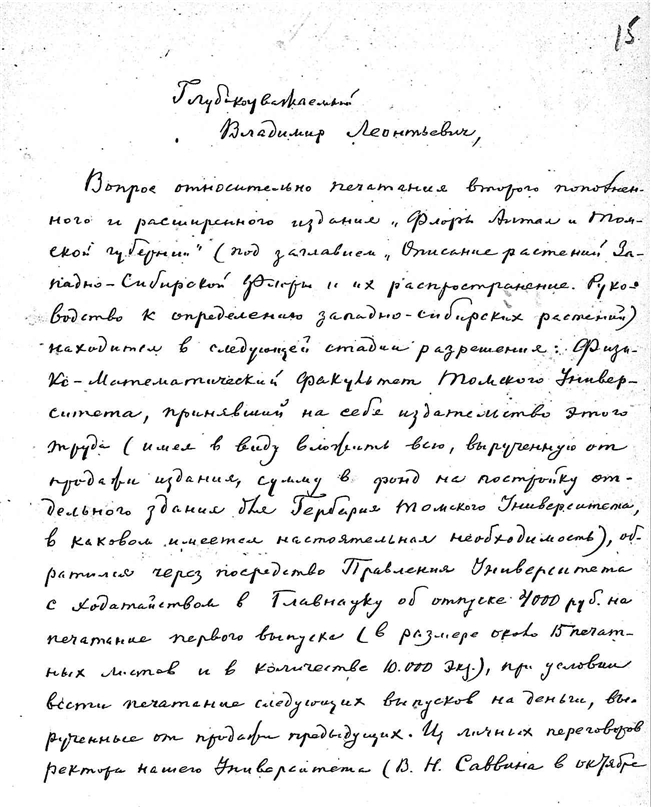 15
Глубокоуважаемый
Владимир Леонтьевич,
Вопрос относительно печатания второго пополнен-
ного и расширенного издания „Флоры Алтая и Том-
ской губернии" (под заглавием „Описание растений За-
падно-Сибирской Флоры и их распространение. Руко-
водство к определению западно-сибирских растений)
находится в следующей стадии разрешения: Физи-
ко-Математический Факультет Томского Универ-
ситета, принявший на себя издательство этого
труда (имея в виду вложить всю, вырученную от
продажи издания, сумму в фонд на постройку от-
дельного здания для Гербария Томского Университета,
в каковом имеется настоятельная необходимость), об-
ратился через посредство Правления Университета
с ходатайством в Главнауку об отпуске 4000 руб. на
печатание первого выпуска (в размере около 15 печат-
ных листов и в количестве 10.000 экз.), при условии
вести печатание следующих выпусков на деньги, вы-
рученные от продажи предыдущих. Из личных переговоров
ректора нашего Университета (В. Н. Саввина в октябре